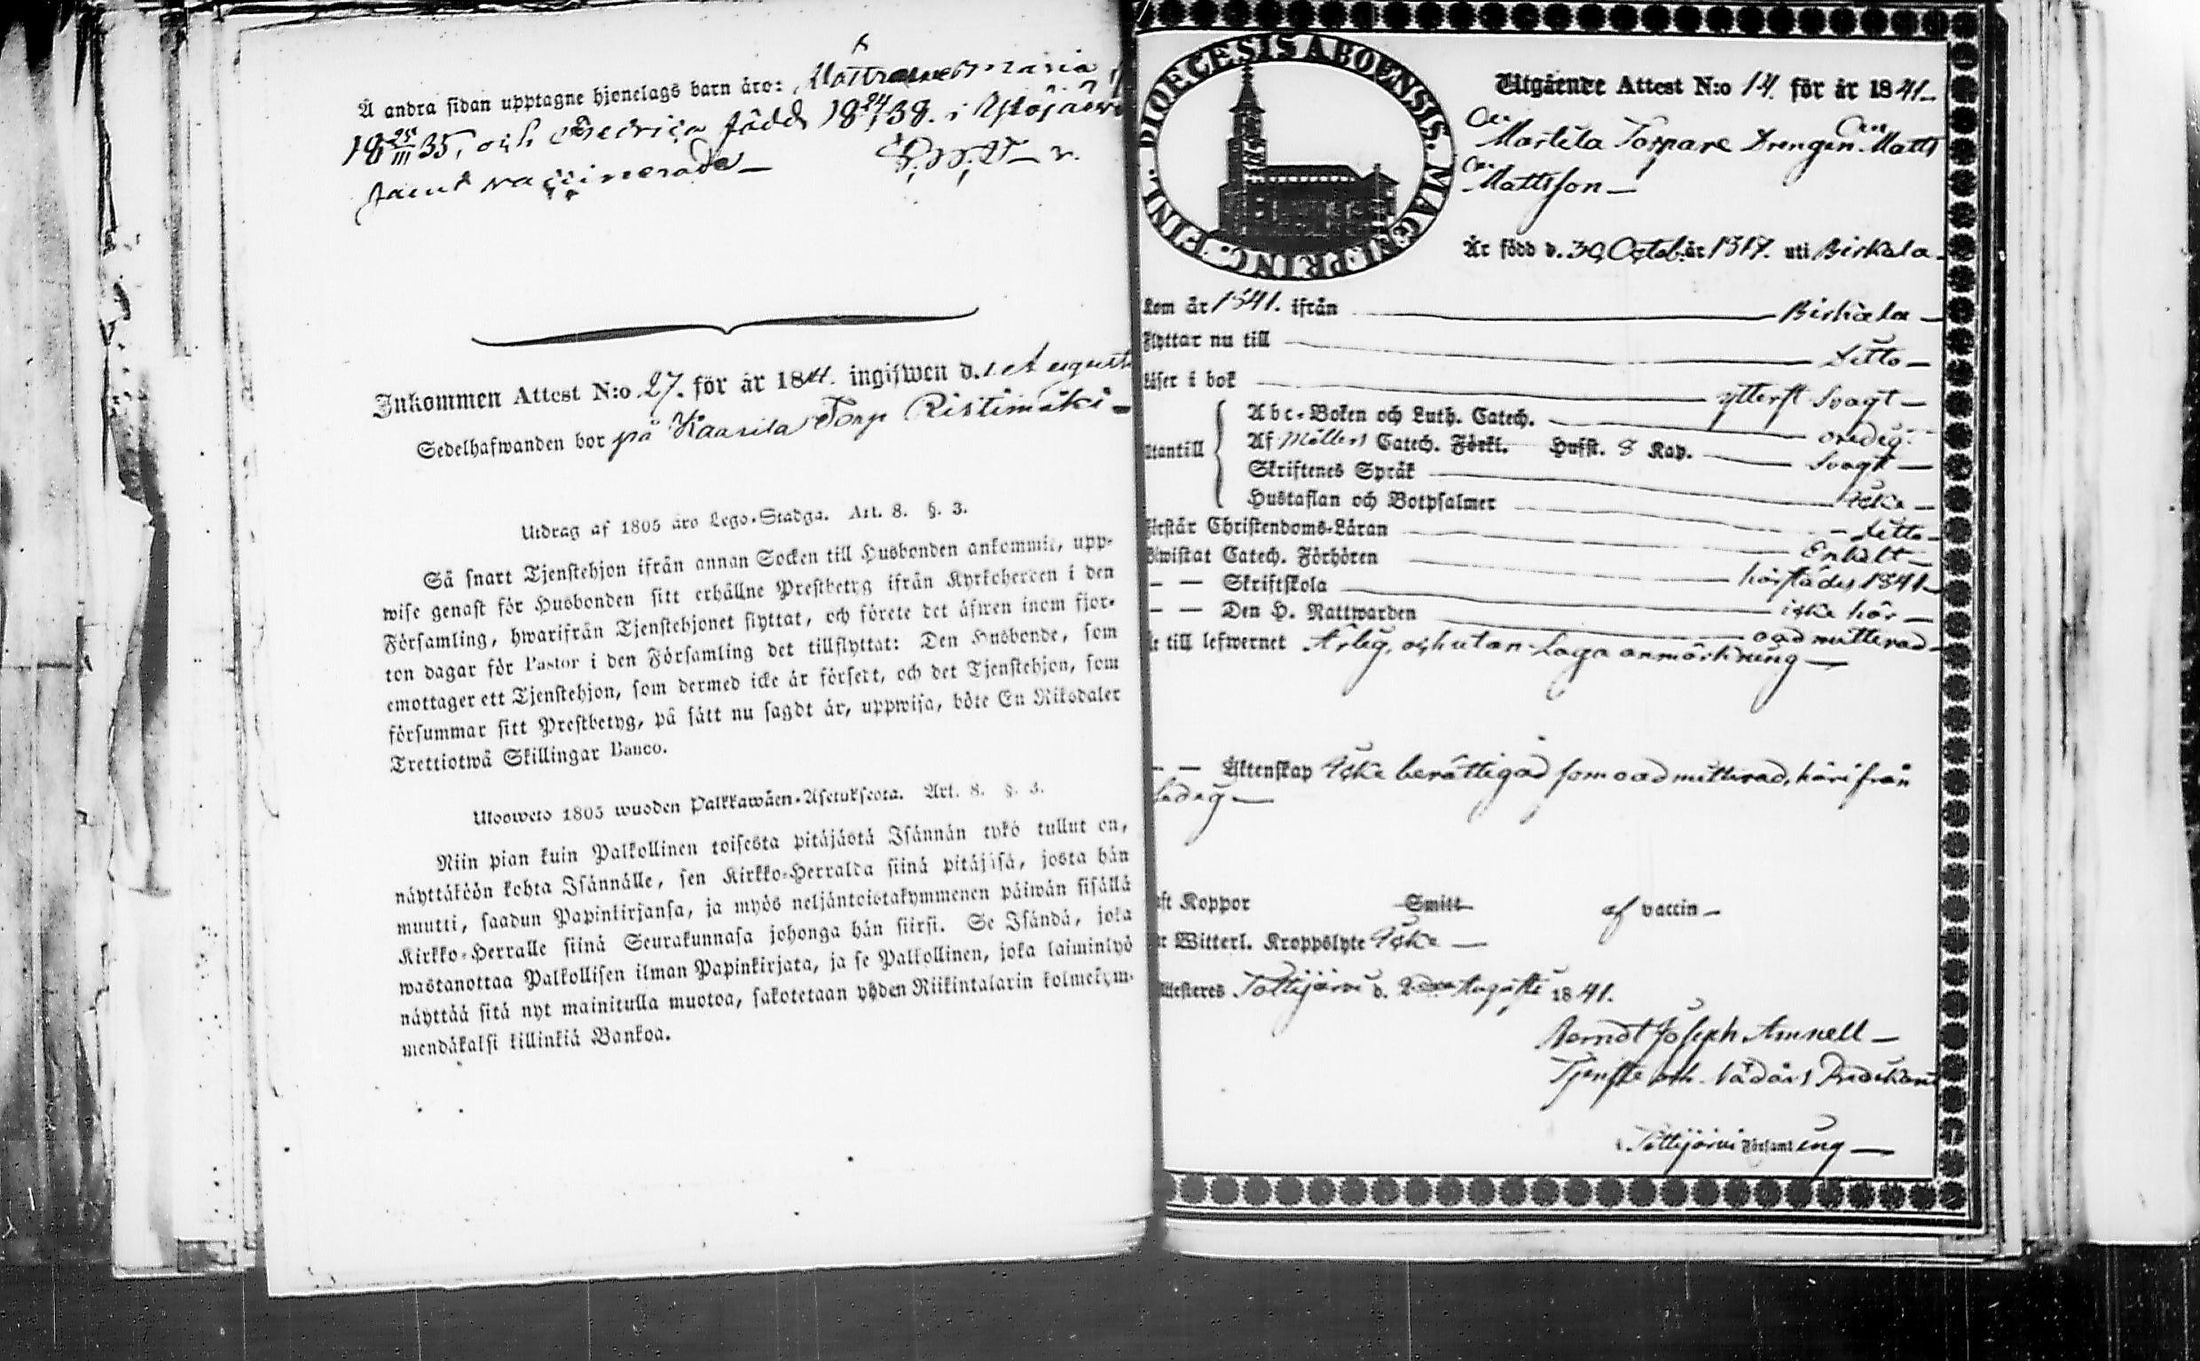 Å andra sidan upptagne hjonelags barn äro: Maria
18 25/III 35, och Fredrica född 18 24/1 38. i Ylöjärvi
samt vaccinerade —
Inkommen Attest N:o 27. för år 1841. ingifwen d. 1 Augusti
Sedelhafwanden bor på Kaarila Torp Ristimäki —
Utdrag af 1805 års Lego-Stadga. Art. 8. §. 3.
Så snart Tjenstehjon ifrån annan Socken till Husbonden ankommit, upp-
wise genast för Husbonden sitt erhållne Prestbetyg ifrån Kyrkoherren i den
Församling, hwarifrån Tjenstehjonet flyttat, och förete det äfwen inom fjor-
ton dagar för Pastor i den Församling det tillflyttat: Den Husbonde, som
emottager ett Tjenstehjon, som dermed icke är försedt, och det Tjenstehjon, som
försummar sitt Prestbetyg, på sätt nu sagdt är, uppwisa, böte En Riksdaler
Trettiotwå Skillingar Banco.
Utosweto 1805 wuoden Palkkawäen-Asetuksesta. Art. 8. §. 3.
Niin pian kuin Palkollinen toisesta pitäjästä Isännän tykö tullut on,
näyttäköön kohta Isännälle, sen Kirkko-Herralda siinä pitäjisä, josta hän
muutti, saadun Papinkirjansa, ja myös neljäntoistakymmenen päiwän sisällä
Kirkko-Herralle siinä Seurakunnasa johonga hän siirsi. Se Isändä, joka
wastanottaa Palkollisen ilman Papinkirjata, ja se Palkollinen, joka laiminlyö
näyttää sitä nyt mainitulla muotoa, sakotetaan yhden Riikintalarin kolmekym-
mendäkaksi killinkiä Bankoa.
DIOECESIS ABOENSIS. MAGNI. PRINC. FINL.
Utgående Attest N:o 14. för år 1841 —
Martila Torpare Drengen Matts
Mattsson —
Är född d. 30 Octob. år 1817. uti Birkala.
kom år 1841. ifrån Birkala —
Flyttar nu till Ditto —
Läser i bok ytterst svagt —
Utantill
Abc-Boken och Luth. Catech. ordeg.
Af Möllers Catech. Förkl. Hufst. 8 Kap. svagt —
Skriftenes Språk icke —
Hustaflan och Botpsalmer Ditto —
Förstår Christendoms-Läran Enkelt —
Biwistat Catech. Förhören härstädes 1841 —
— — Skriftskola icke här —
— — Den H. Nattwarden oadmitterad —
till lefwernet Ärlig, och utan Laga anmärkning —
— — Äktenskap Icke berättigad som oadmitterad, härifrån
ledig —
Haft Koppor Smitt af vaccin —
Witterl. Kroppslyte Icke —
Attesteres Tottijärvi d. 2 Augusti 1841.
Berndt Joseph Amnell —
Tjenste och Nådårs Predikant
i Tottijärvi Församling —